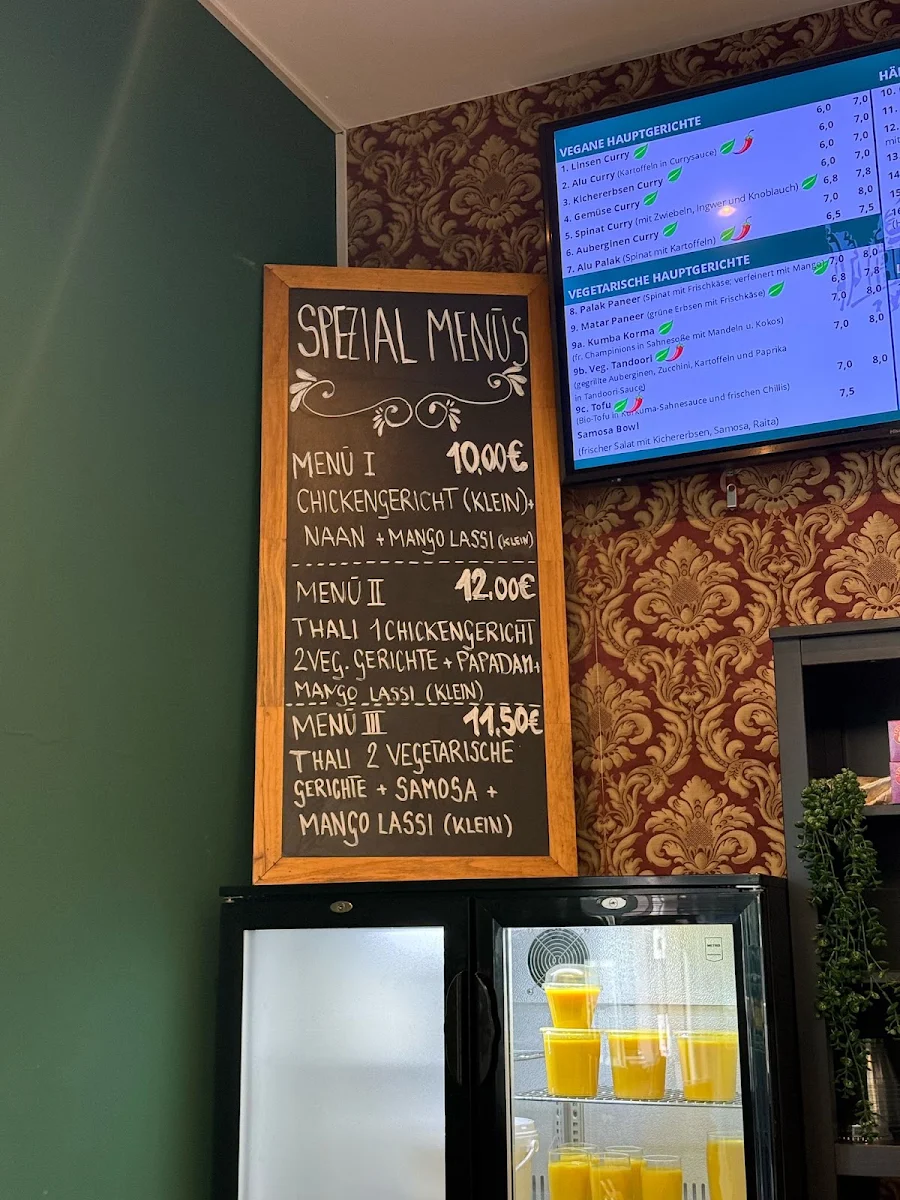 SPEZIAL MENÜS
MENÜ I 10,00€
CHICKENGERICHT (KLEIN)+
NAAN + MANGO LASSI (KLEIN)
MENÜ II 12,00€
THALI 1 CHICKENGERICHT
2 VEG. GERICHTE + PAPADAM+
MANGO LASSI (KLEIN)
MENÜ III 11,50€
THALI 2 VEGETARISCHE
GERICHTE + SAMOSA +
MANGO LASSI (KLEIN)
VEGANE HAUPTGERICHTE
1. Linsen Curry 6,0 7,0
2. Alu Curry (Kartoffeln in Currysauce) 6,0 7,0
3. Kichererbsen Curry 6,0 7,0
4. Gemüse Curry 6,0 7,0
5. Spinat Curry (mit Zwiebeln, Ingwer und Knoblauch) 6,8 7,8
6. Auberginen Curry 7,0 8,0
7. Alu Palak (Spinat mit Kartoffeln) 6,5 7,5
VEGETARISCHE HAUPTGERICHTE
8. Palak Paneer (Spinat mit Frischkäse; verfeinert mit Mango) 7,0 8,0
9. Matar Paneer (grüne Erbsen mit Frischkäse) 6,8 7,8
9a. Kumba Korma 7,0 8,0
(fr. Champinions in Sahnesoße mit Mandeln u. Kokos)
9b. Veg. Tandoori 7,0 8,0
(gegrillte Auberginen, Zucchini, Kartoffeln und Paprika
in Tandoori-Sauce)
9c. Tofu 7,0 8,0
(Bio-Tofu in Kurkuma-Sahnesauce und frischen Chillis)
Samosa Bowl 7,5
(frischer Salat mit Kichererbsen, Samosa, Raita)
10.
11.
12.
13
14
15